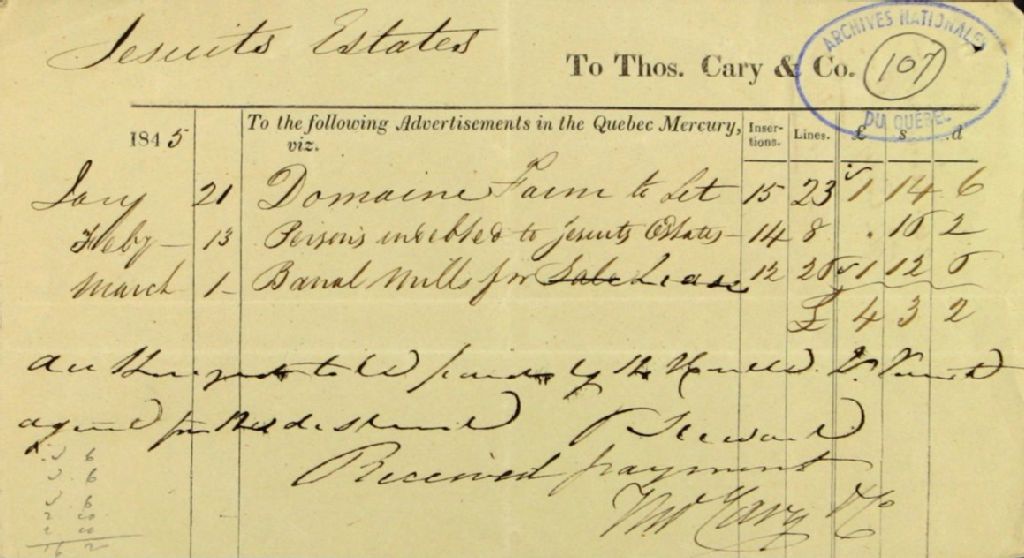 Jesuits Estates
To Thos. Cary & Co.
ARCHIVES NATIONALES
107
DU QUÉBEC
1845 To the following Advertisements in the Quebec Mercury, viz. Insertions. Lines. £ s d
Jany 21 Domaine Farm to Let 15 23 1 14 6
Feby 13 Persons indebted to Jesuits Estates 14 8 . 16 2
March 1 Banal Mills for Sale Lease 12 1 12 6
£ 4 3 2
to be paid by the Honble D.
agent for
Steward
Received payment
Thos Cary & Co
3 6
3 6
3 6
16 2